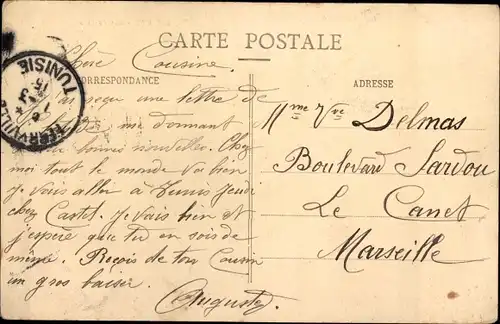 CARTE POSTALE
CORRESPONDANCE
ADRESSE
FERRYVILLE
TUNISIE
Chère Cousine
J'ai reçu une lettre de
me donnant
bonnes nouvelles. Chez
moi tout le monde va bien
Je vais aller à Tunis jeudi
chez Castel. Je vais bien et
j'espère que tu en sois de
même. Reçois de ton Cousin
un gros baiser.
Auguste
Mme Vve Delmas
Boulevard Sardou
Le Canet
Marseille